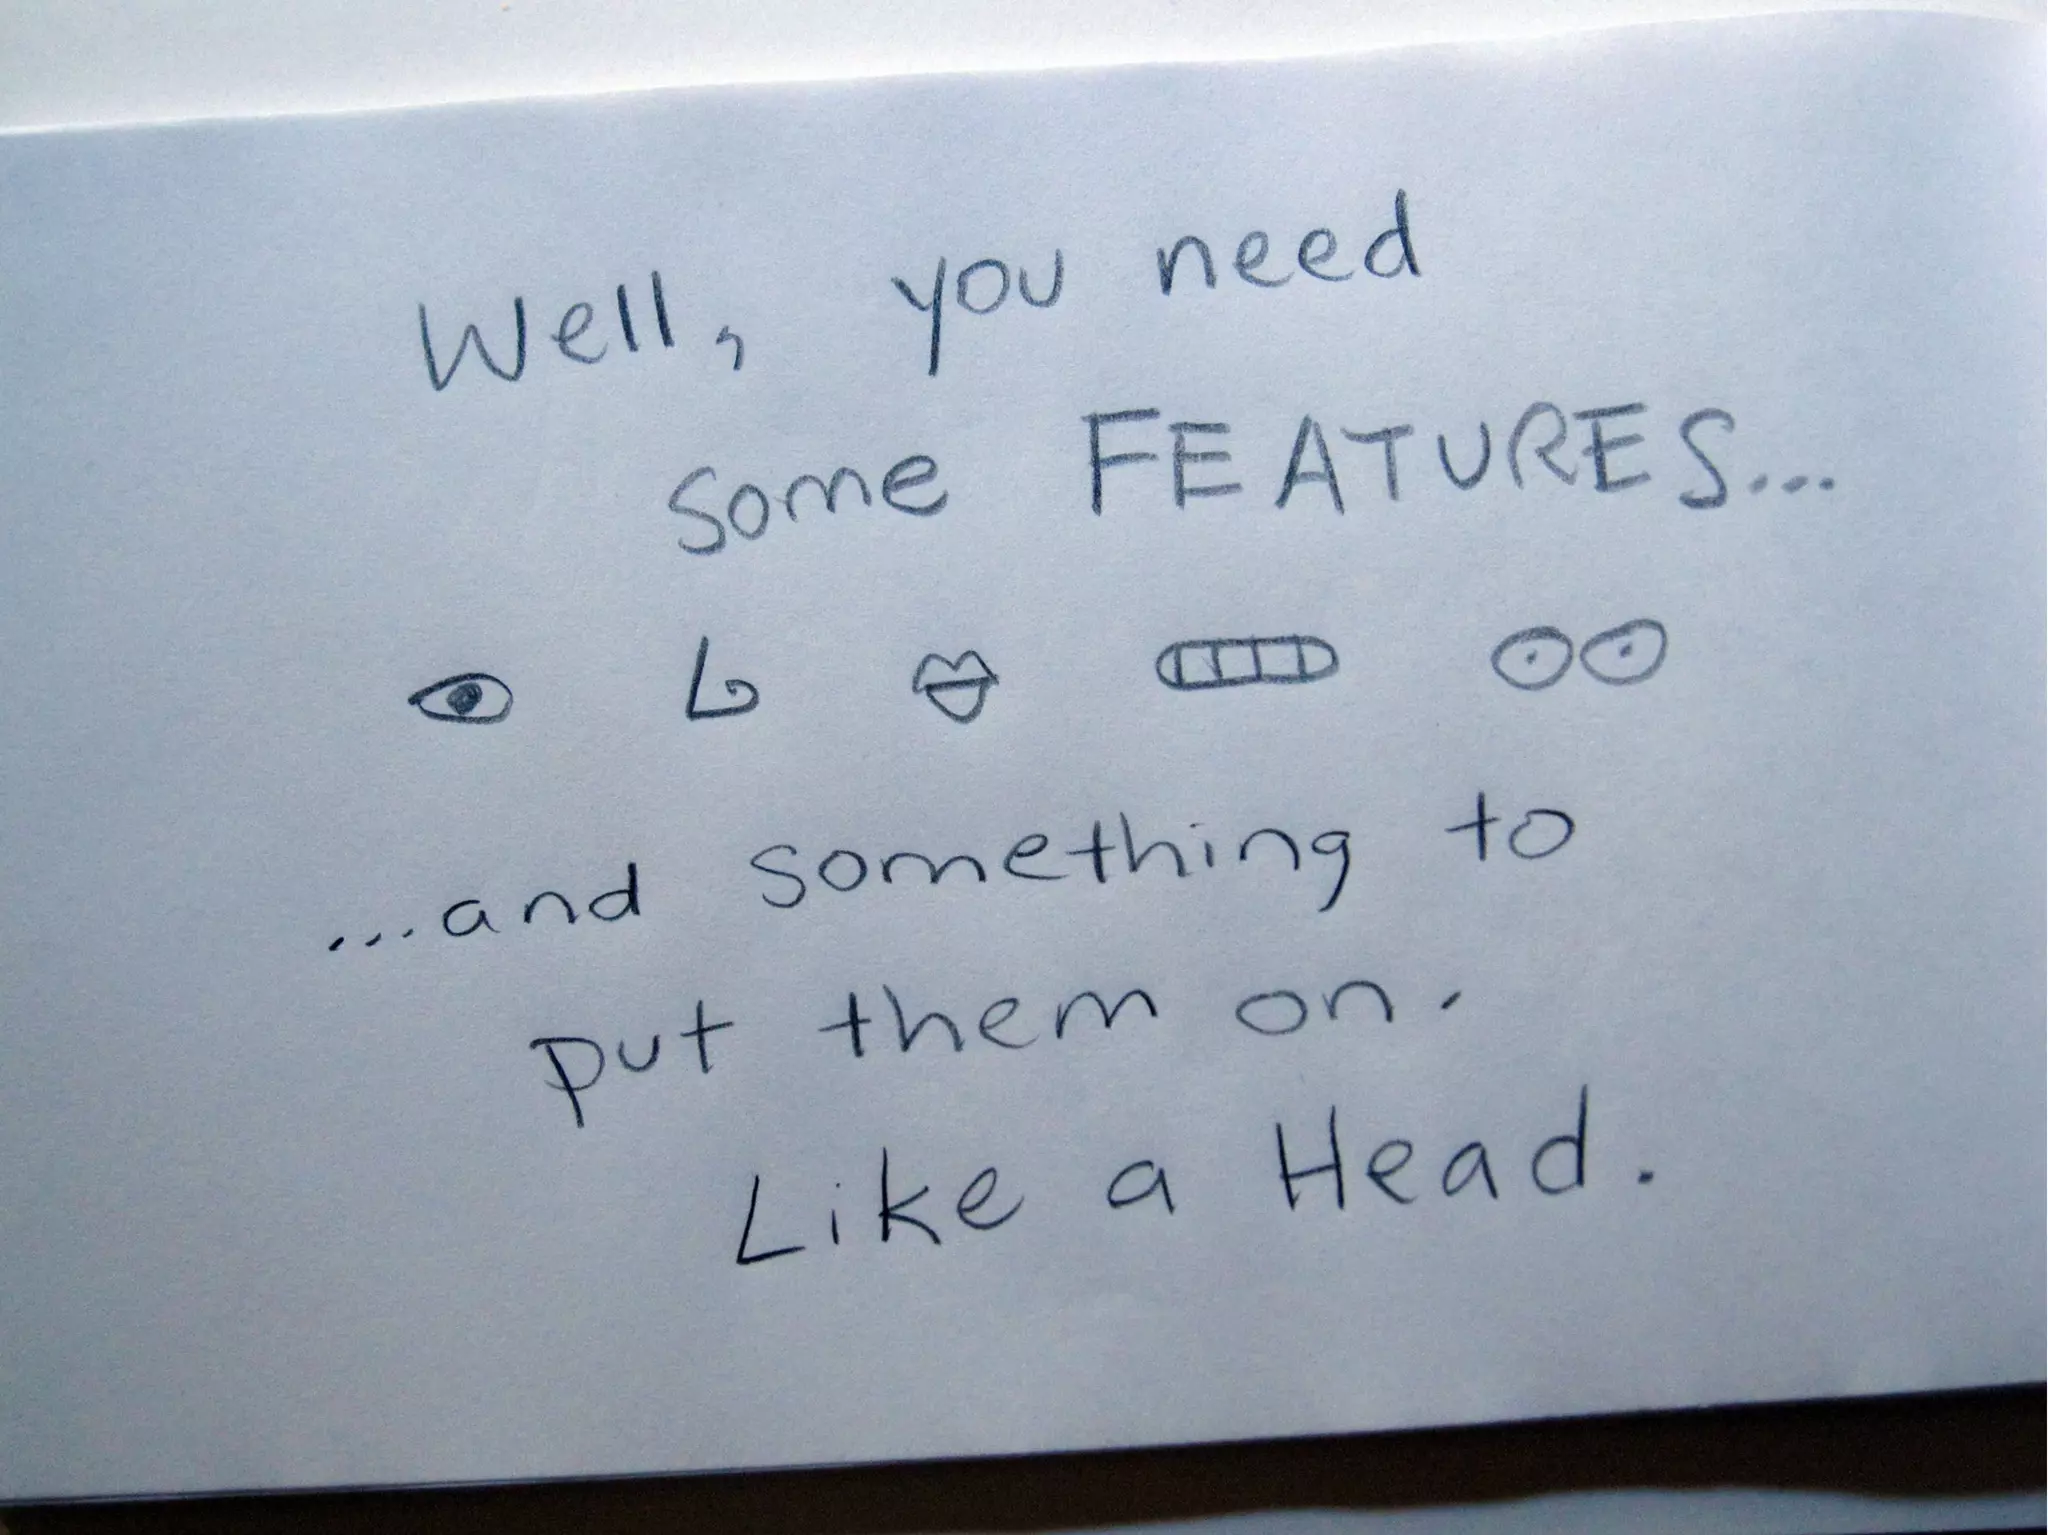 Well, you need
some FEATURES...
...and something to
put them on.
Like a Head.